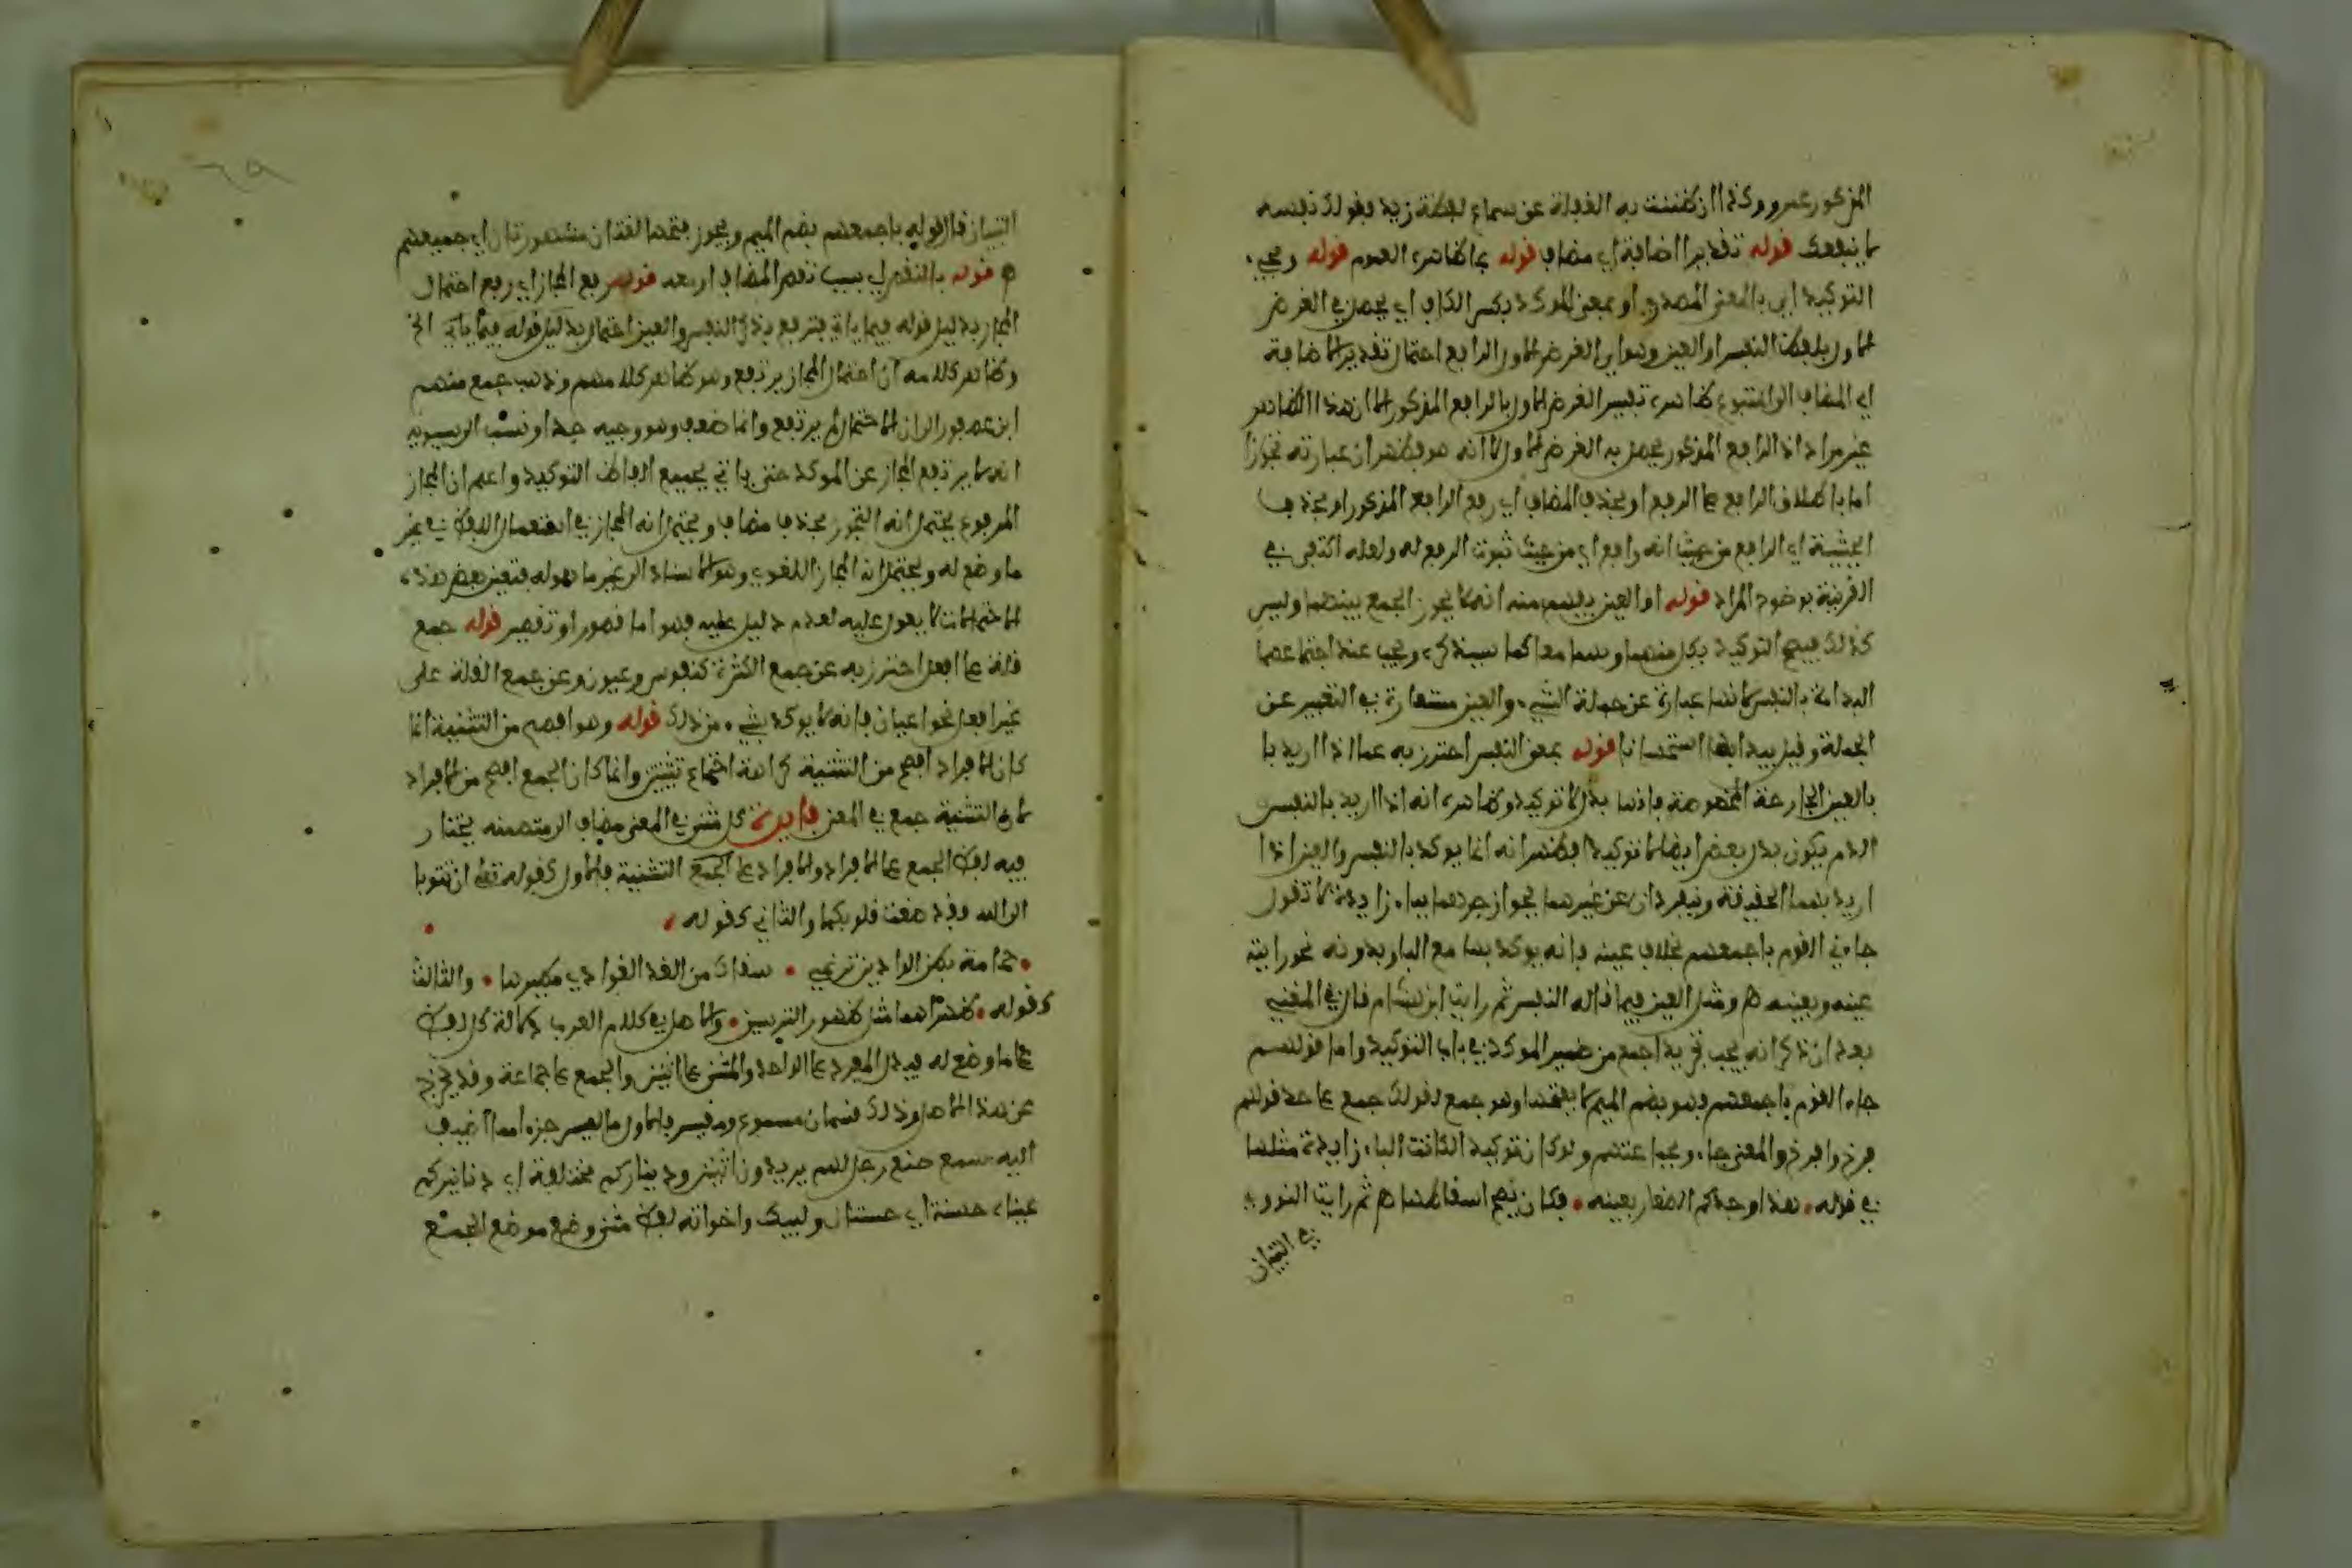 المذكور عمرو وكذا ان ظننت به الغفلة عن سماع لفظة زيد فقولك نفسه
لا ينفعك قوله تقديرا اضافة اي مضاف قوله بما ظاهره العموم قوله ويجيء
التوكيد اي بالمعنى المصدري او بمعنى الموكد بكسر الكاف اي يحصل في الغرض
الاول بلفظ النفس او العين وهو اي الغرض الاول الرابع احتمال تقدير اضافة
اي المضاف الى المتبوع ظاهره تفسير الغرض الاول بالرابع المذكور الا ان هذا الظاهر
غير مراد اذ الرابع المذكور يحصل به الغرض الاول لا انه هو فظهر ان عبارته تجوزا
اما باطلاق الرابع على الرفع او بحذف المضاف اي رفع الرابع المذكور او بحذف
الحيثية اي الرابع من حيث انه رافع اي من حيث ثبوت الرفع له ولعله اكتفى في
القرينة بوضوح المراد قوله او العين يفهم منه انه لا يجوز الجمع بينهما وليس
كذلك فيصح التوكيد بكل منهما وبهما معا كما سيذكره ويجب عند اجتماعهما
البداءة بالنفس لانها عبارة عن جملة الشيء والعين مستعارة في التعبير عن
الجملة وقيل يبدا بها استحسانا قوله بمعنى النفس احترز به عما اذا اريد با
بالعين الجارحة المخصوصة فانها بدل لا توكيد وظاهره انه اذا اريد بالنفس
الدم يكون بدل بعض ايضا لا توكيدا فظهر انه انما يوكد بالنفس والعين اذا
اريد بهما الحقيقة وينفردان عن غيرهما بجواز جرهما بباء زايدة لا تقول
جاءني القوم باجمعهم بخلاف عينه فانه يوكد بها مع البا وبدونه نحو رايته
عينه وبعينه هم ومثل العين فيما قاله النفس ثم رايت ابن هشام قال في المغني
بعد ان ذكر انه يجب تجريد اجمع من ضمير الموكد في باب التوكيد واما قولهم
جاء القوم باجمعهم فهو بضم الميم لا بفتحها وهو جمع لقولك جمع على حد قولهم
فرخ وافرخ والمعنى جاءو بجماعتهم ولو كان توكيدا لكانت الباء زايدة مثلها
في قوله • هذا وجدكم الصغار بعينه • فكان يصح اسقاطها هم ثم رايت النووي
في التبيان
التبيان قال قوله باجمعهم بضم الميم ويجوز فتحها لغتان مشهورتان اي جميعهم
هم قوله بالنقص اي بسبب نقص المضاف او بعد قوله رفع المجاز اي رفع احتمال
المجاز بدليل قوله فيما ياتي فترفع بذكر النفس والعين احتمال بدليل قوله فيما ياتي الخ
وظاهر كلامه ان احتمال المجاز يرتفع وهو ظاهر كلامهم وذهب جمع منهم
ابن عصفور الى ان الاحتمال لم يرتفع وانما ضعف وهو وجيه جدا ونسب الى سيبويه
انه لا يرتفع المجاز عن الموكد حتى ياتي بجميع الفاظ التوكيد واعلم ان المجاز
المرفوع يحتمل انه التجوز بحذف مضاف ويحتمل انه المجاز في استعمال اللفظ في غير
ما وضع له ويحتمل انه المجاز اللغوي وهو الاسناد الى غير ما هوله فتعين بعض هذه
الاحتمالات لا يعول عليه لعدم دليل عليه فهو اما قصور او تقصير قوله جمع
قلة على افعل احترز به عن جمع الكثرة كنفوس وعيون وعن جمع القلة على
غير افعل نحو اعيان فانه لا يوكد بشيء من ذلك قوله وهو افصح من التثنية انما
كان الافراد افصح من التثنية كراهة اجتماع تثنيتين وانما كان الجمع افصح من الافراد
لان التثنية جمع في المعنى فايدة كل مثنى في المعنى مضاف الى متضمنه يختار
فيه لفظ الجمع على الافراد والافراد على الجمع التثنية فالاول كقوله تعالى ان تتوبا
الى الله فقد صغت قلوبكما والثاني كقوله •
• حمامة بطن الواديين ترنمي • سقاك من الغر الغوادي مطيرها • والثالث
كقوله • ظهراهما مثل ظهور الترسين • والاصل في كلام العرب دلالة كل لفظ
على ما وضع له فيدل المفرد على الواحد والمثنى على اثنين والجمع على جماعة وقد يخرج
عن هذا الاصل وذلك قسمان مسموع ومقيس فالاول ما ليس جزءا مما اضيف
اليه سمع ضع رجلهم يريدون اثنين وديناركم مختلفة اي دنانيركم
عيناه حسنة اي حسنتان ولبيك واخواته لفظ مثنى وضع موضع الجمع